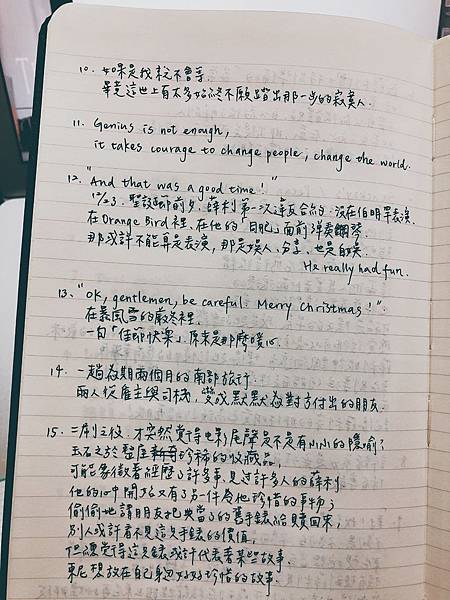 10. 如果是我就不會等
畢竟這世上有太多始終不願踏出那一步的寂寞人.
11. Genius is not enough,
it takes courage to change people, change the world.
12. "And that was a good time!"
12/23. 聖誕節前夕. 薛利第一次違反合約. 沒在伯明罕表演.
在Orange Bird裡、在他的「日肥」面前彈奏鋼琴.
那或許不能算是表演, 那是娛人、分享、也是自娛.
He really had fun.
13. "OK, gentlemen, be careful. Merry Christmas!".
在暴風雪的嚴冬裡.
一句「佳節快樂」原來是那麼暖心.
14. 一趟為期兩個月的南部旅行.
兩人從雇主與司機, 變成默默為對方付出的朋友.
15. 二刷之後, 才突然覺得電影尾聲是不是有小小的隱喻?
玉石之於整屋珍稀的收藏品,
可能象徵著經歷了許多事、見過許多人的薛利.
他的心中開始又有了另一件令他珍惜的事物;
偷偷地請朋友把典當了的舊手錶給贖回來,
別人或許看不見這支手錶的價值,
但總覺得這支錶或許代表著某些故事.
東尼想放在自己身邊好好珍惜的故事.